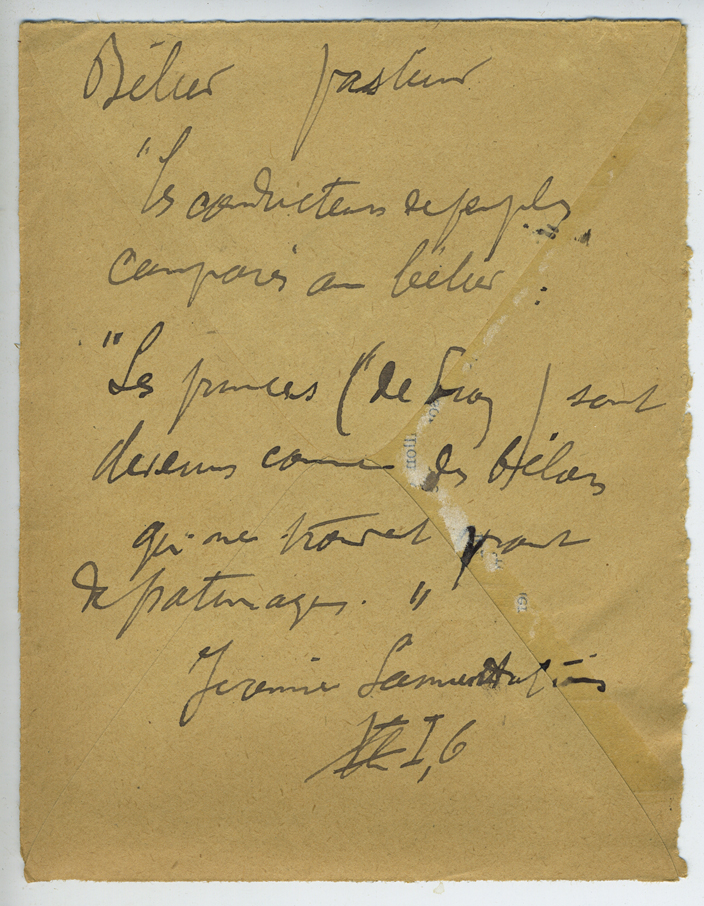 Bélier pasteur
"les conducteurs de peuples
comparés au bélier :
"Les princes ("de Sion) sont
devenus comme des béliers
qui ne trouvent point
de pâturages. "
Jeremie Lamentations
I, 6